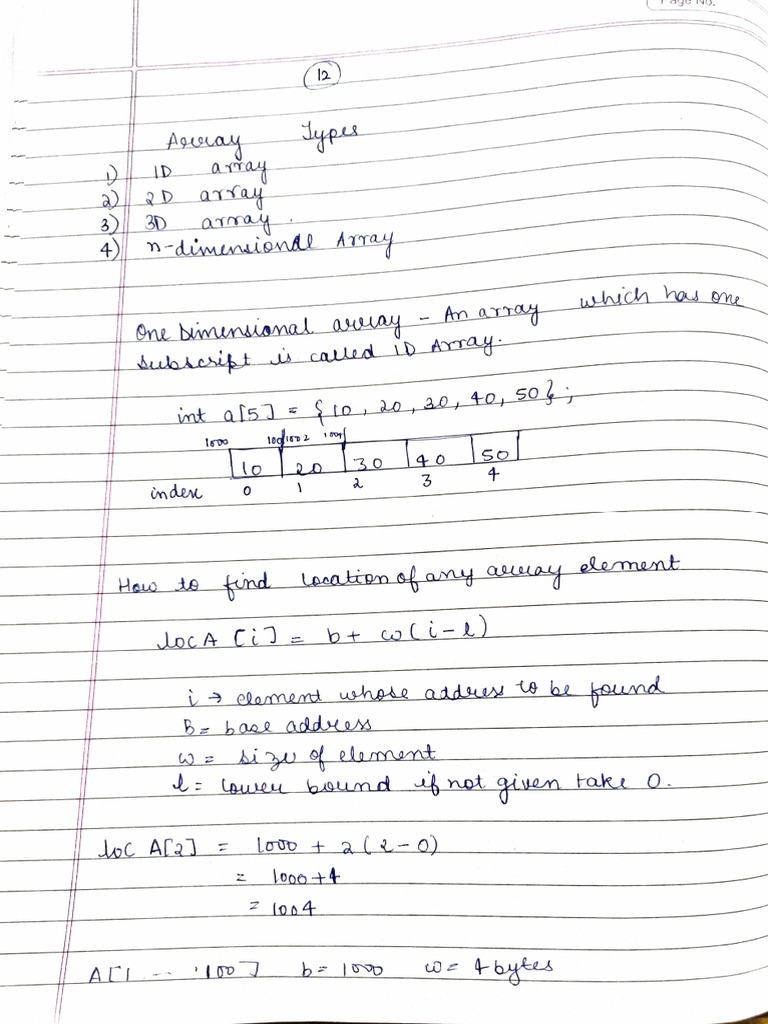 Page No.
12
Array Types
1) 1D array
2) 2D array
3) 3D array.
4) n-dimensional Array
One Dimensional array - An array which has one
subscript is called 1D Array.
int a[5] = {10, 20, 30, 40, 50};
1000 1001 1002 1004
10 20 30 40 50
index 0 1 2 3 4
How to find location of any array element
loc A [i] = b + w(i-l)
i → element whose address to be found
B = base address
w = size of element
l = lower bound if not given take 0.
loc A[2] = 1000 + 2(2-0)
= 1000+4
= 1004
A[1 --- 100] b = 1000 w = 4 bytes